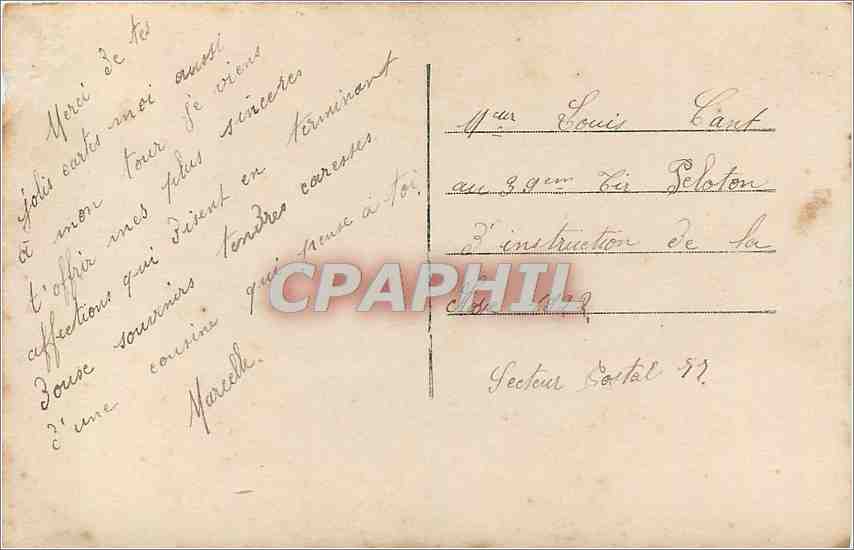 Merci de tes
jolis cartes moi aussi
à mon tour je viens
t'offrir mes plus sincères
affections qui disent en terminant
douse souvenirs tendres caresses
d'une cousine qui pense à toi.
Marcelle.
Meur Louis Cant
au 39em Tir Peloton
d'instruction de la
Secteur Postal
CPAPHIL